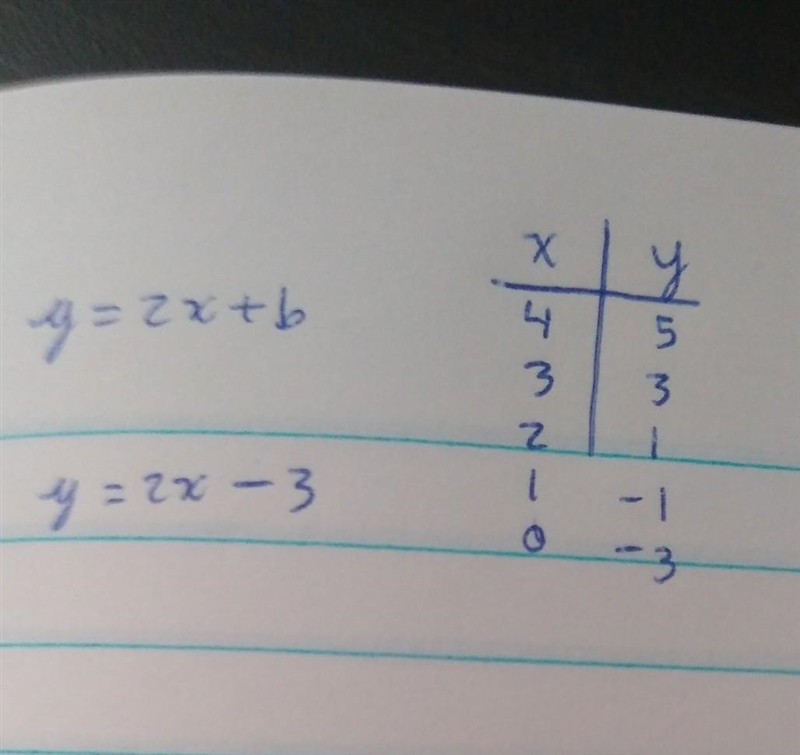 y = 2x + b
y = 2x - 3
x y
4 5
3 3
2 1
1 -1
0 -3